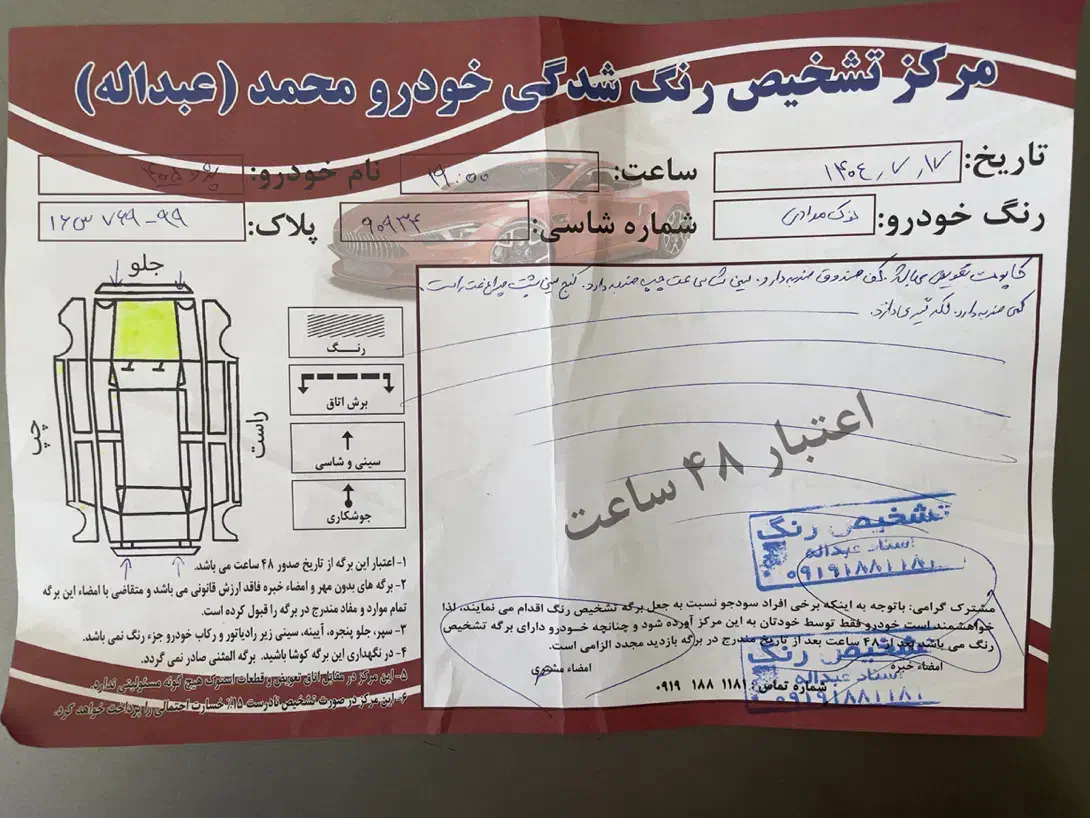 مرکز تشخیص رنگ شدگی خودرو محمد (عبداله)
تاریخ: ۱۴۰۴٫۷٫۱۷
ساعت: ۱۹:۰۰
نام خودرو: پژو ۴۰۵
رنگ خودرو: نوک مدادی
شماره شاسی: ۹۰۹۳۴
پلاک: ۱۶ س ۷۶۹-۹۹
کاپوت تعویض می‌باشد. کف صندوق ضربه دارد. سینی شاسی عقب چپ ضربه دارد. کنج سینی پشت چراغ عقب راست
کمی ضربه دارد. لکه گیری
جلو
چپ
راست
رنگ
برش اتاق
سینی و شاسی
جوشکاری
اعتبار ۴۸ ساعت
۱- اعتبار این برگه از تاریخ صدور ۴۸ ساعت می باشد.
۲- برگه های بدون مهر و امضاء خبره فاقد ارزش قانونی می باشد و متقاضی با امضاء این برگه
تمام موارد و مفاد مندرج در برگه را قبول کرده است.
۳- سپر، جلو پنجره، آیینه، سینی زیر رادیاتور و رکاب خودرو جزء رنگ نمی باشد.
۴- در نگهداری این برگه کوشا باشید. برگه المثنی صادر نمی گردد.
۵- این مرکز در مقابل اتاق تعویض و قطعات استوک هیچ گونه مسئولیتی ندارد.
۶- این مرکز در صورت تشخیص نادرست ۱۵٪ خسارت احتمالی را پرداخت خواهد کرد.
تشخیص رنگ
استاد عبداله
۰۹۱۹۱۸۸۱۱۸۱
مشترک گرامی: باتوجه به اینکه برخی افراد سودجو نسبت به جعل برگه تشخیص رنگ اقدام می نمایند، لذا
خواهشمند است خودرو فقط توسط خودتان به این مرکز آورده شود و چنانچه خودرو دارای برگه تشخیص
رنگ می باشد بعد از ۴۸ ساعت بعد از تاریخ مندرج در برگه بازدید مجدد الزامی است.
امضاء خبره
امضاء مشتری
شماره تماس: ۰۹۱۹ ۱۸۸ ۱۱۸۱
تشخیص رنگ
استاد عبداله
۰۹۱۹۱۸۸۱۱۸۱